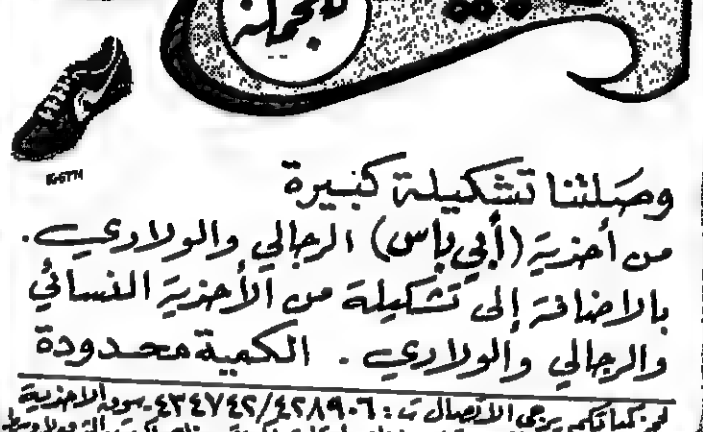 للجملة
وصلتنا تشكيلة كبيرة
من أحذية (أبي باس) الرجالي والولادي.
بالاضافة إلى تشكيلة من الأحذية النسائي
والرجالي والولادي. الكمية محدودة
يرجى الاتصال ت: ٤٣٤٧٤٢/٤٢٨٩٠٦ - سوق الاحذية